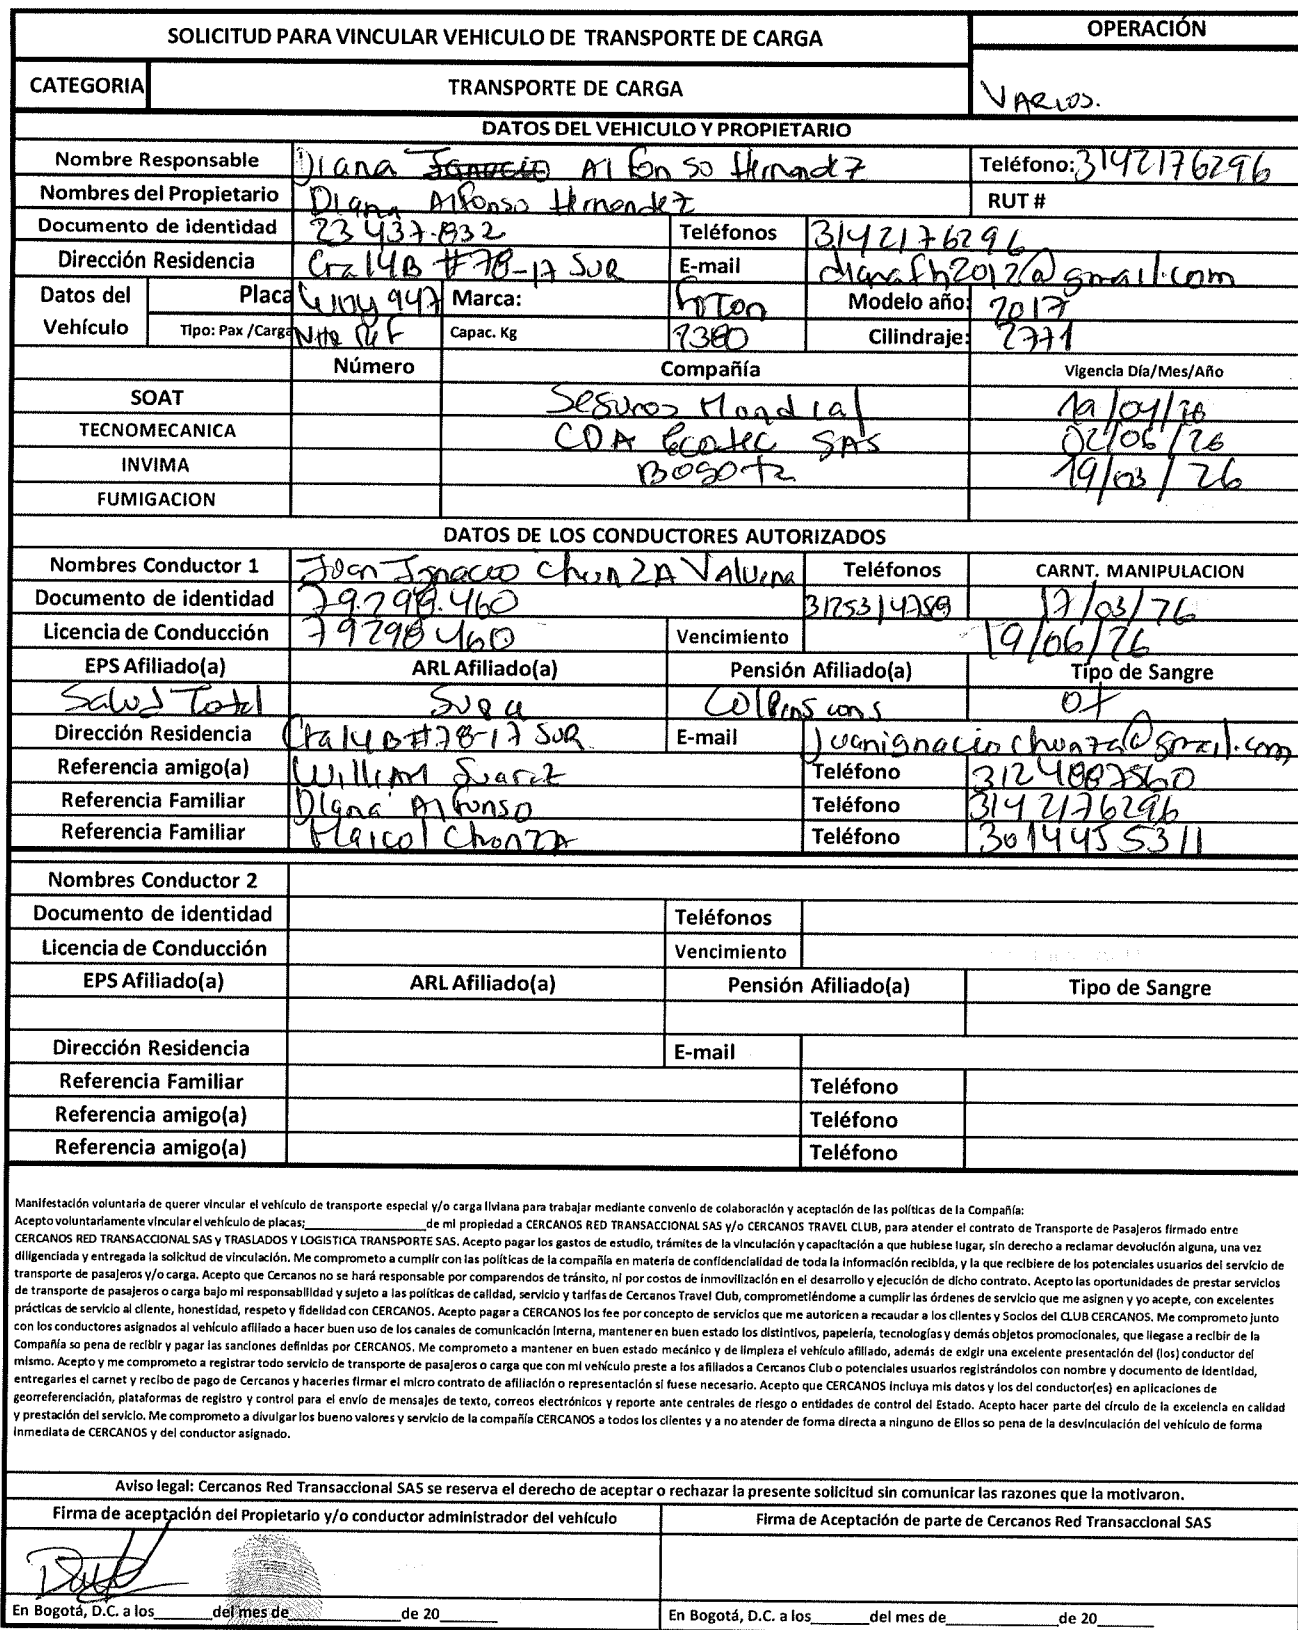 SOLICITUD PARA VINCULAR VEHICULO DE TRANSPORTE DE CARGA
OPERACIÓN
CATEGORIA TRANSPORTE DE CARGA
VARIOS.
DATOS DEL VEHICULO Y PROPIETARIO
Nombre Responsable Diana Alfonso Hernandez Teléfono: 3142176296
Nombres del Propietario Diana Alfonso Hernendez RUT #
Documento de identidad 23 437.832 Teléfonos 3142176296
Dirección Residencia Cra 14B #78-17 SUR E-mail dianafh2012@gmail.com
Datos del Vehículo Placa 947 Marca: Foton Modelo año: 2017
Tipo: Pax /Carga Capac. Kg 2380 Cilindraje: 2771
Número Compañía Vigencia Día/Mes/Año
SOAT Seguros Mondial
TECNOMECANICA CDA Ecotec SAS 02/06/26
INVIMA Bogota 19/03/26
FUMIGACION
DATOS DE LOS CONDUCTORES AUTORIZADOS
Nombres Conductor 1 Juan Ignacio ChunZA Teléfonos CARNT. MANIPULACION
Documento de identidad 79.298.460 3125314758 17/03/26
Licencia de Conducción 79298460 Vencimiento 19/06/26
EPS Afiliado(a) ARL Afiliado(a) Pensión Afiliado(a) Tipo de Sangre
Salud Total Sura O+
Dirección Residencia Cra 14B #78-17 SUR E-mail Juanignaciochunza@gmail.com
Referencia amigo(a) William Suarez Teléfono 3124887560
Referencia Familiar Diana Alfonso Teléfono 3142176296
Referencia Familiar Maicol ChonZA Teléfono 3014455311
Nombres Conductor 2
Documento de identidad Teléfonos
Licencia de Conducción Vencimiento
EPS Afiliado(a) ARL Afiliado(a) Pensión Afiliado(a) Tipo de Sangre
Dirección Residencia E-mail
Referencia Familiar Teléfono
Referencia amigo(a) Teléfono
Referencia amigo(a) Teléfono
Manifestación voluntaria de querer vincular el vehículo de transporte especial y/o carga liviana para trabajar mediante convenio de colaboración y aceptación de las políticas de la Compañía:
Acepto voluntariamente vincular el vehículo de placas;____________________de mi propiedad a CERCANOS RED TRANSACCIONAL SAS y/o CERCANOS TRAVEL CLUB, para atender el contrato de Transporte de Pasajeros firmado entre
CERCANOS RED TRANSACCIONAL SAS y TRASLADOS Y LOGISTICA TRANSPORTE SAS. Acepto pagar los gastos de estudio, trámites de la vinculación y capacitación a que hubiese lugar, sin derecho a reclamar devolución alguna, una vez
diligenciada y entregada la solicitud de vinculación. Me comprometo a cumplir con las políticas de la compañía en materia de confidencialidad de toda la información recibida, y la que recibiere de los potenciales usuarios del servicio de
transporte de pasajeros y/o carga. Acepto que Cercanos no se hará responsable por comparendos de tránsito, ni por costos de inmovilización en el desarrollo y ejecución de dicho contrato. Acepto las oportunidades de prestar servicios
de transporte de pasajeros o carga bajo mi responsabilidad y sujeto a las políticas de calidad, servicio y tarifas de Cercanos Travel Club, comprometiéndome a cumplir las órdenes de servicio que me asignen y yo acepte, con excelentes
prácticas de servicio al cliente, honestidad, respeto y fidelidad con CERCANOS. Acepto pagar a CERCANOS los fee por concepto de servicios que me autoricen a recaudar a los clientes y Socios del CLUB CERCANOS. Me comprometo junto
con los conductores asignados al vehículo afiliado a hacer buen uso de los canales de comunicación interna, mantener en buen estado los distintivos, papelería, tecnologías y demás objetos promocionales, que llegase a recibir de la
Compañía so pena de recibir y pagar las sanciones definidas por CERCANOS. Me comprometo a mantener en buen estado mecánico y de limpieza el vehículo afiliado, además de exigir una excelente presentación del (los) conductor del
mismo. Acepto y me comprometo a registrar todo servicio de transporte de pasajeros o carga que con mi vehículo preste a los afiliados a Cercanos Club o potenciales usuarios registrándolos con nombre y documento de identidad,
entregarles el carnet y recibo de pago de Cercanos y hacerles firmar el micro contrato de afiliación o representación si fuese necesario. Acepto que CERCANOS incluya mis datos y los del conductor(es) en aplicaciones de
georreferenciación, plataformas de registro y control para el envío de mensajes de texto, correos electrónicos y reporte ante centrales de riesgo o entidades de control del Estado. Acepto hacer parte del círculo de la excelencia en calidad
y prestación del servicio. Me comprometo a divulgar los bueno valores y servicio de la compañía CERCANOS a todos los clientes y a no atender de forma directa a ninguno de Ellos so pena de la desvinculación del vehículo de forma
inmediata de CERCANOS y del conductor asignado.
Aviso legal: Cercanos Red Transaccional SAS se reserva el derecho de aceptar o rechazar la presente solicitud sin comunicar las razones que la motivaron.
Firma de aceptación del Propietario y/o conductor administrador del vehículo Firma de Aceptación de parte de Cercanos Red Transaccional SAS
En Bogotá, D.C. a los_______del mes de______________de 20_______ En Bogotá, D.C. a los_______del mes de______________de 20_______